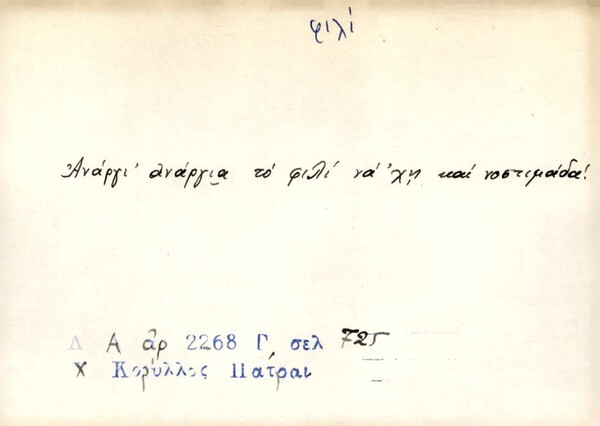 φιλί
Ἀνάργι' ἀνάργια τό φιλί νά 'χῃ καί νοστιμάδα!
Λ Α ἀρ 2268 Γ σελ 725
Χ Κορύλλος Πάτραι